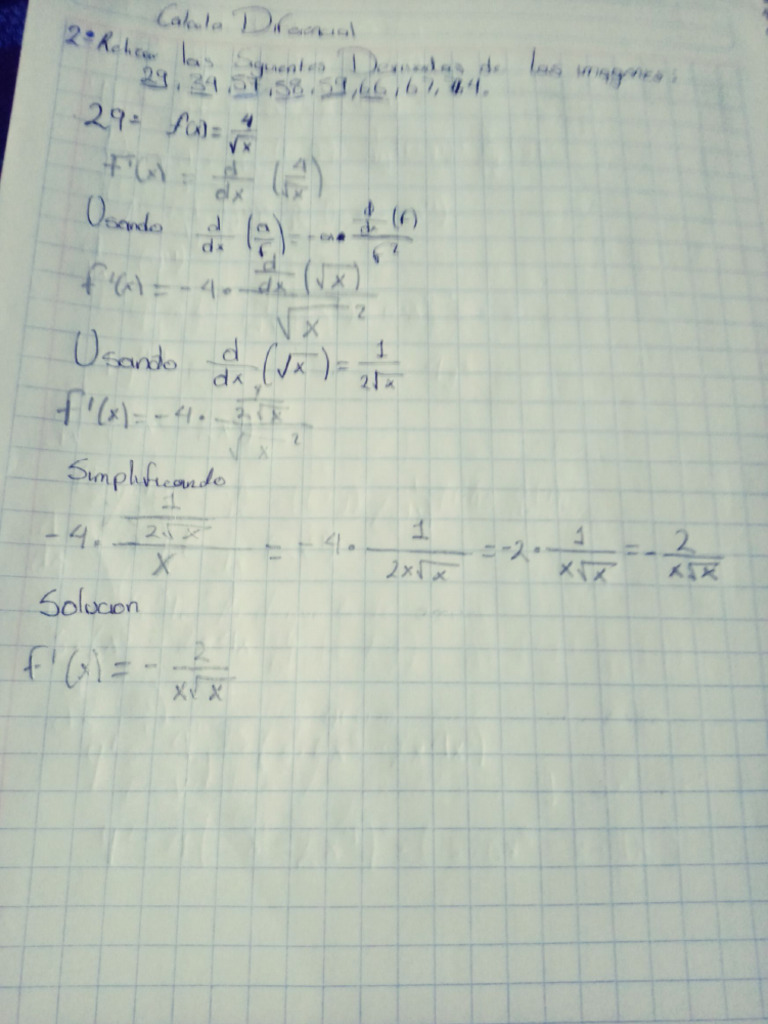 Calculo Diferencial
2° Realizar las Siguientes Derivadas de las imagenes:
29, 34, 57, 58, 59, 66, 67, 44.
29= f(x) = 4/√x
F'(x) = d/dx (4/√x)
Usando d/dx (a/f) = -a · d/dx (f) / f²
f'(x) = -4 · d/dx (√x) / √x²
Usando d/dx (√x) = 1/2√x
f'(x) = -4 · 1/2√x / √x²
Simplificando
-4 · 1/2√x / x = -4 · 1/2x√x = -2 · 1/x√x = - 2/x√x
Solucion
f'(x) = - 2/x√x